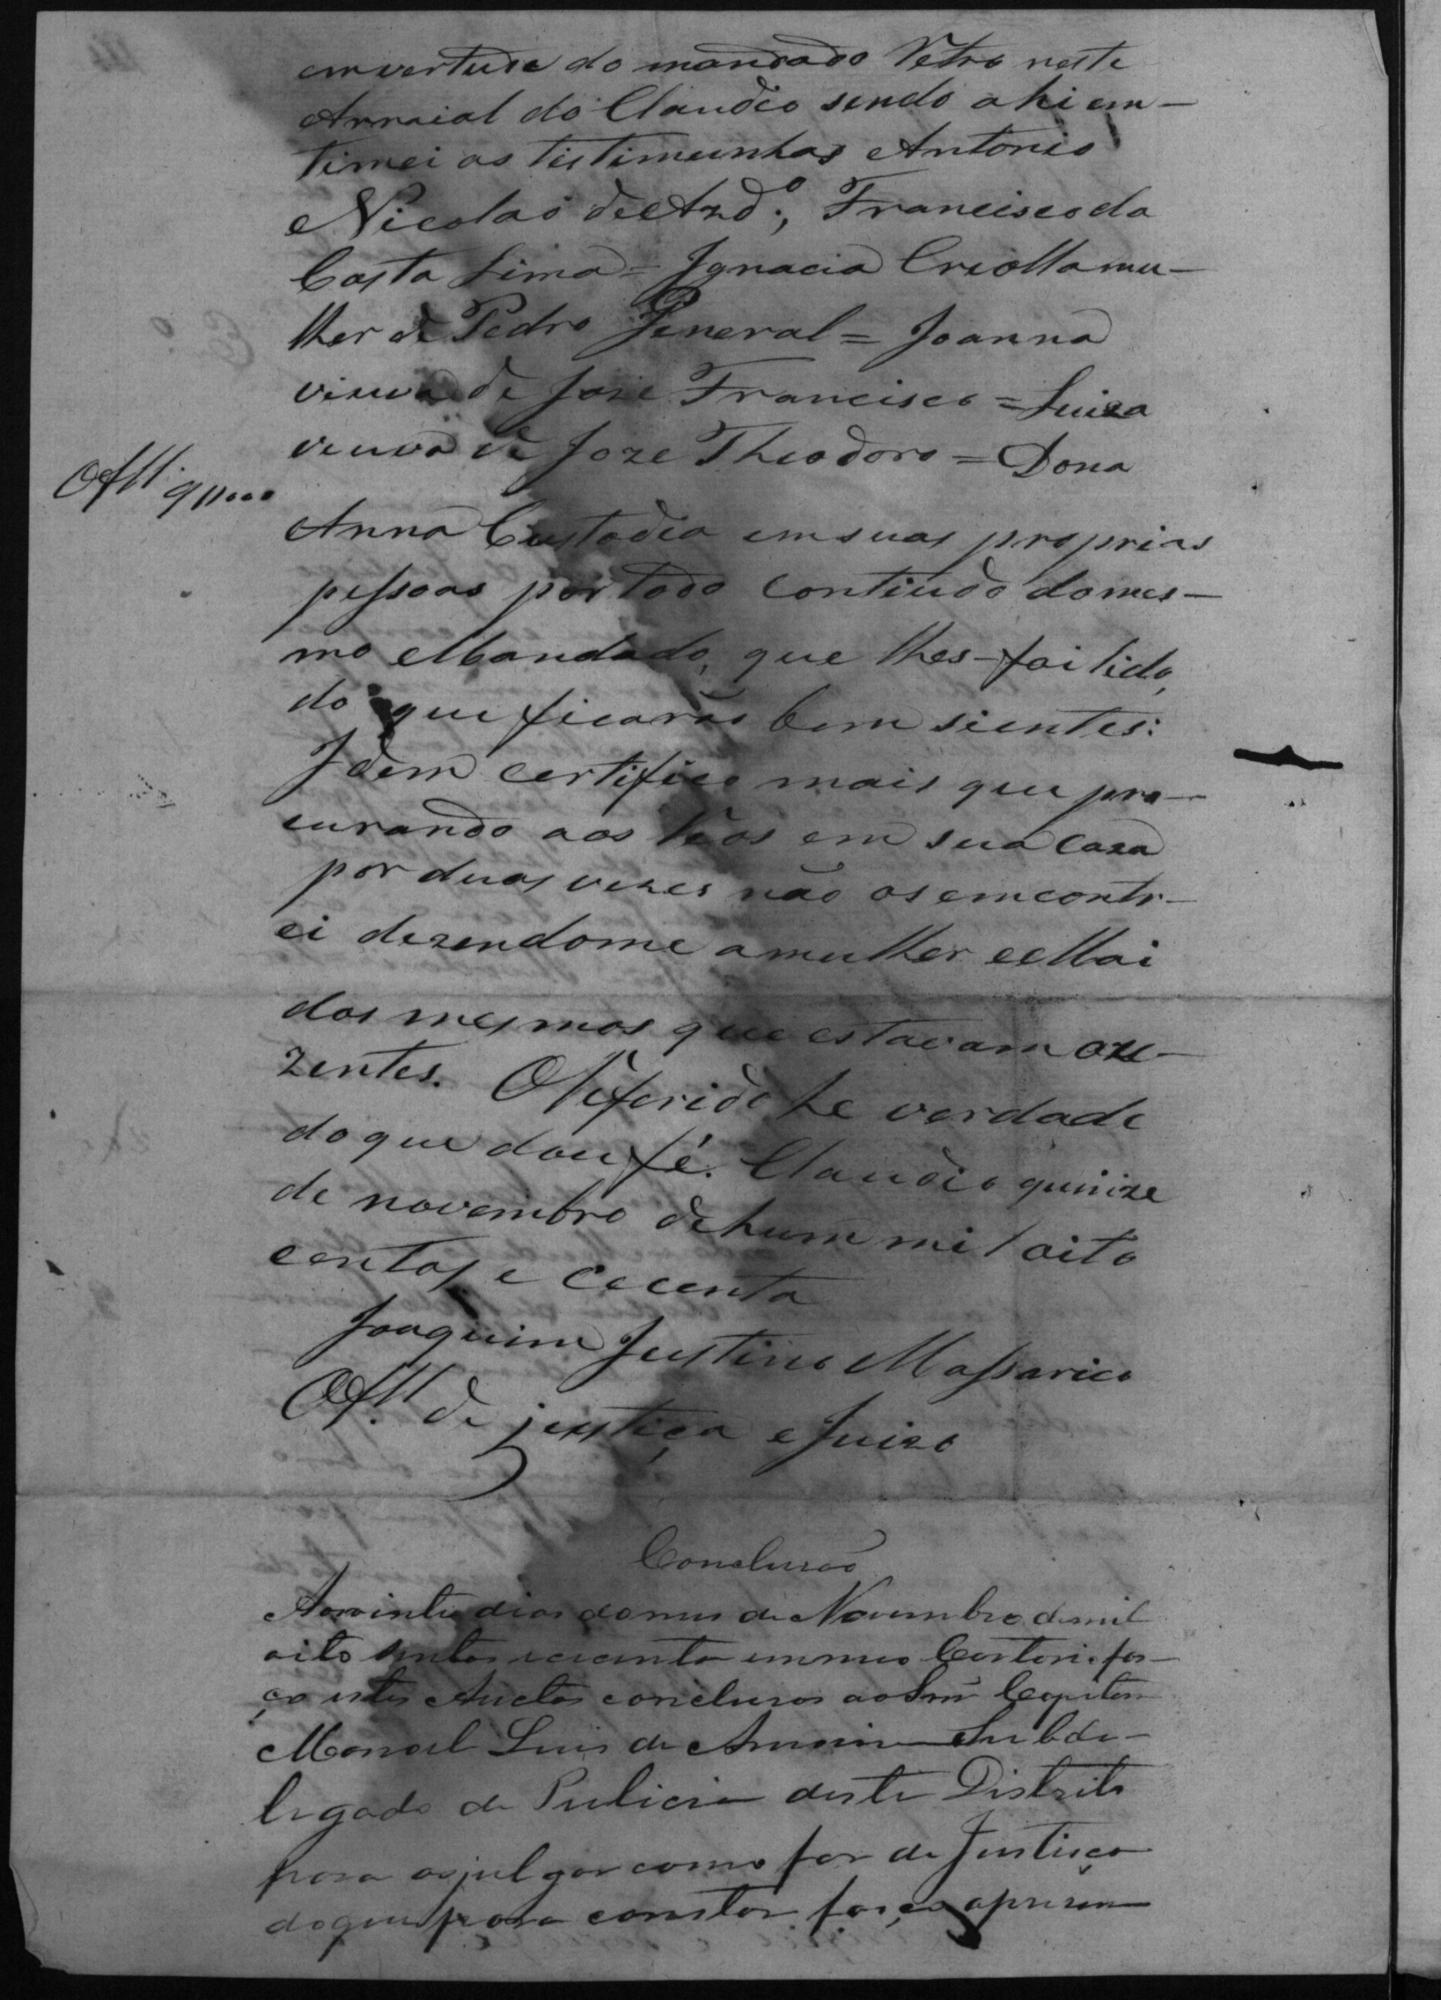 em vertude do mandado Retro neste
Arraial do Claudio sendo ahi em-
timei as testimunhas Antonio
Nicolaó de Azdº; Francisco da
Costa Lima = Ignacia Criolla mu-
lher de Pedro General = Joanna
viuva de Joze Francisco = Luiza
veuva de Joze Theodoro = Dona
Anna Custodia em suas proprias
pessoas por todo contiudo do mes-
mo Mandado, que lhes-foi lido,
do que ficarão bem sientes:
Idem certifico mais que pro-
curando aos Réos em sua caza
por duas vezes não os emcontr-
ei dezendome a mulher e Mai
dos mesmos que estavam aze-
zentes. O Referido he verdade
do que dou fé. Claudio quinze
de novembro de hum mil oito
centos e cecenta
Joaquim Justino Massarico
Off.al de justiça e Juizo
Conclusão
Aos vinte dias do mes de Novembro de mil
oito sentos e cecenta em meo Cartorio fas-
ço estes Auctos conclusos ao Snr Capitam
Manoel Luis de Amorim Subde-
legado de Pulicia deste Distrito
para os julgar como for de Justiça
do que para constar faço a prezen